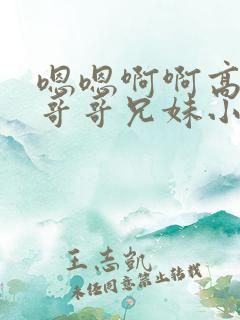 嗯嗯啊啊高
哥哥兄妹小
王志凯
未经同意禁止转载